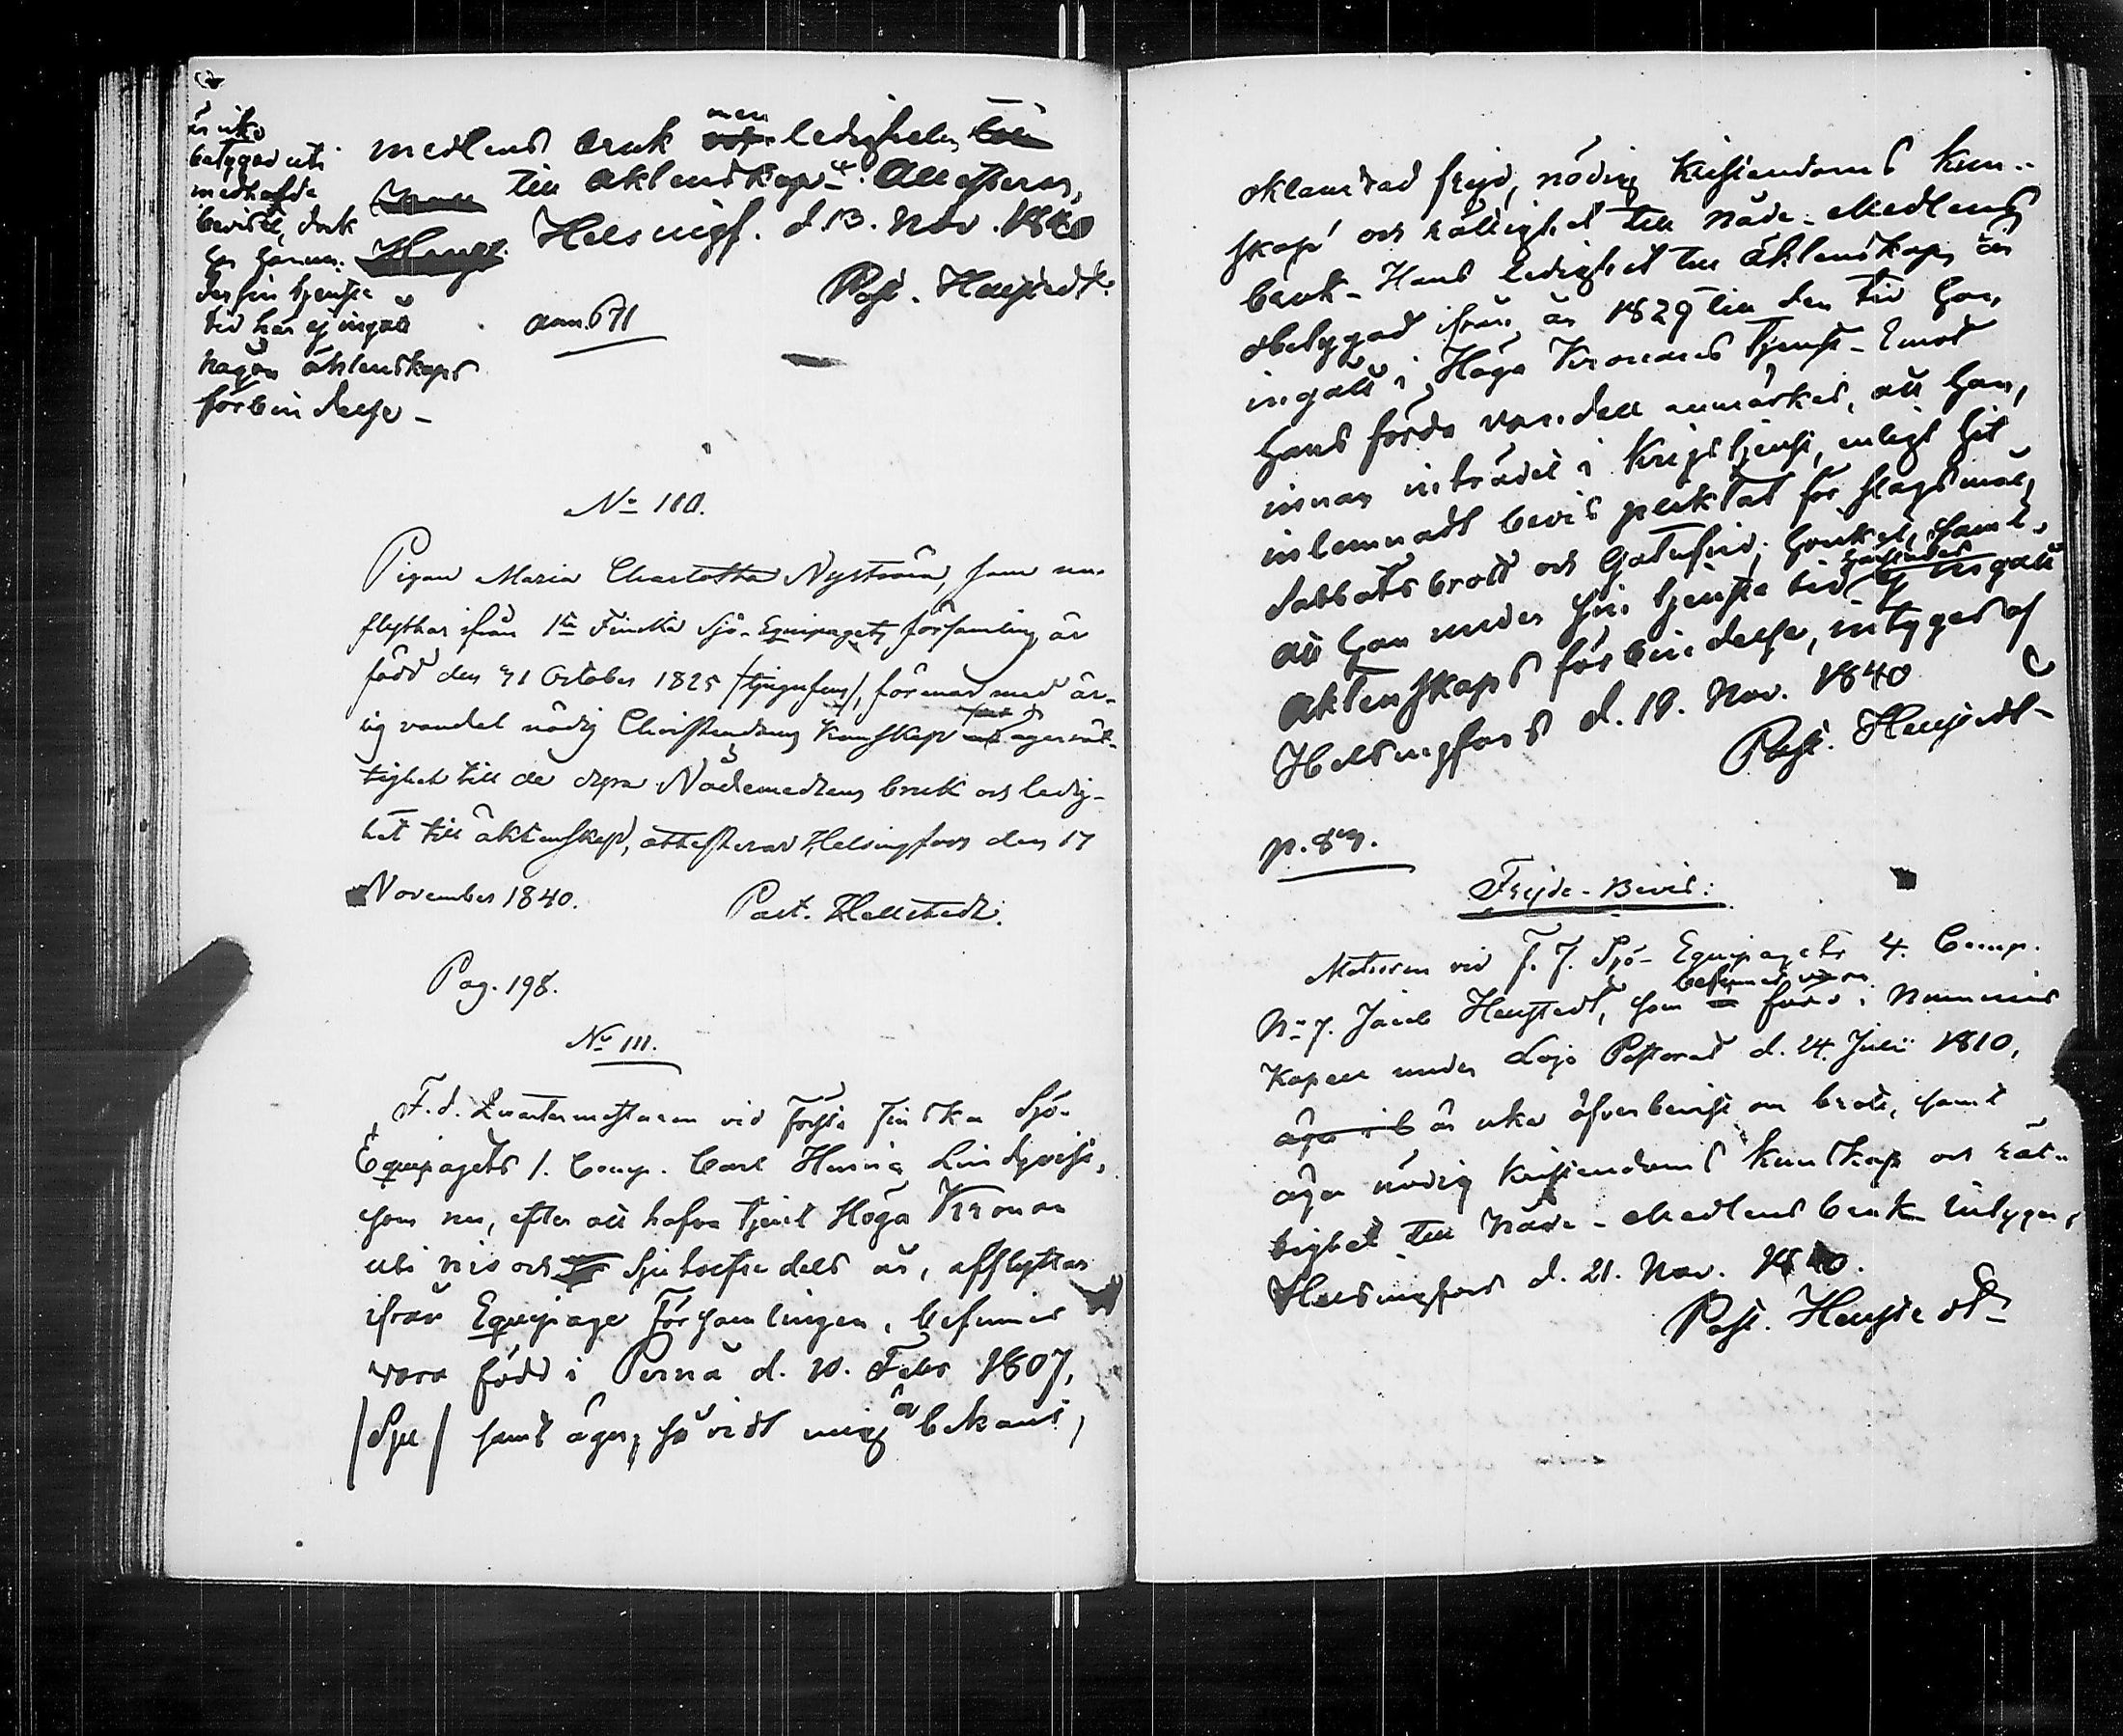 är icke
betygad uti
medhafde
beviset, dock
har han un-
der sin tjenste
tid här ej ingått
någon äktenskaps
förbindelse -
medlens bruk men ledigheten
till äktenskap. Attesteras,
Helsingf. d. 13. Nov. 1840
Past. Hellstedt.
No 110.
Pigan Maria Charlotta Nyström, som nu
flyttar ifrån 1sta Finska Sjö-Equipagets församling är
född den 31 October 1825 /tjugufem/, förenar med är-
lig vandel nödig Christendoms kunskap samt äger rät-
tighet till de dyra Nådemedlens bruk och ledig-
het till äktenskap, attesteras Helsingfors den 17
November 1840.
Past. Hellstedt.
Pag. 198.
No 111.
F.d. Quartermästaren vid första finska Sjö-
Equipagets 1. Comp. Carl Henric Lindqvist,
som nu, efter att hafva tjent Höga Kronan
uti nio och sju tolftedels år, afflyttar
ifrån Equipage Församlingen, befinnes
vara född i Perno d. 10. Febr 1807,
/Sju/ samt äger, så vidt mig är bekant,
oklandrad frejd, nödig kristendoms kun-
skap och rättighet till Nåde-Medlens
bruk - Hans ledighet till äktenskap är
obetygad ifrån år 1829 till den tid han,
ingått i Höga Kronans tjenst - Emot
hans förda vandel anmärkes, att han,
innan inträdet i Krigstjenst, enligt hit
inlemnadt bevis pliktat för slagsmål,
Sabbatsbrott och
att han under sin tjenste tid ej ingått
äktenskaps förbindelse, intygas af
Helsingfors d. 19. Nov. 1840
Past. Hellstedt -
p. 87.
Frejde-Bevis:
Matrosen vid F. F. Sjö-Equipagets 4. Comp.
No 7. Jacob Hellstedt, som befinnes vara född i Nummis
Kapell under Lojo Pastorat d. 24. Julii 1810,
är icke öfverbevist om brott, samt
äger nödig kristendoms kunskap och rät-
tighet till Nåde-Medlens bruk intygas,
Helsingfors d. 21. Nov. 1840.
Past. Hellstedt -